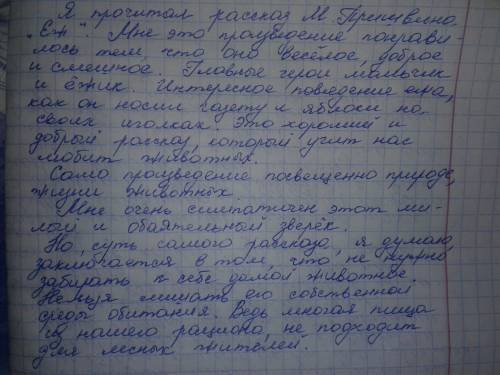 Я прочитал рассказ М. Пришвина
"Ёж". Мне это произведение понрави-
лось тем, что оно весёлое, доброе
и смешное. Главные герои мальчик
и ёжик. Интересное поведение ежа,
как он носил газету и яблоки на
своих иголках. Это хороший и
добрый рассказ, который учит нас
любить животных.
Само произведение посвещенно природе,
жизни животных
Мне очень симпатичен этот ми-
лый и обаятельный зверёк.
Но, суть самого рассказа, я думаю,
заключается в том, что не нужно
забирать к себе домой животное.
Нельзя лишать его собственной
среды обитания. Ведь многая пища
из нашего рациона, не подходит
для лесных жителей.